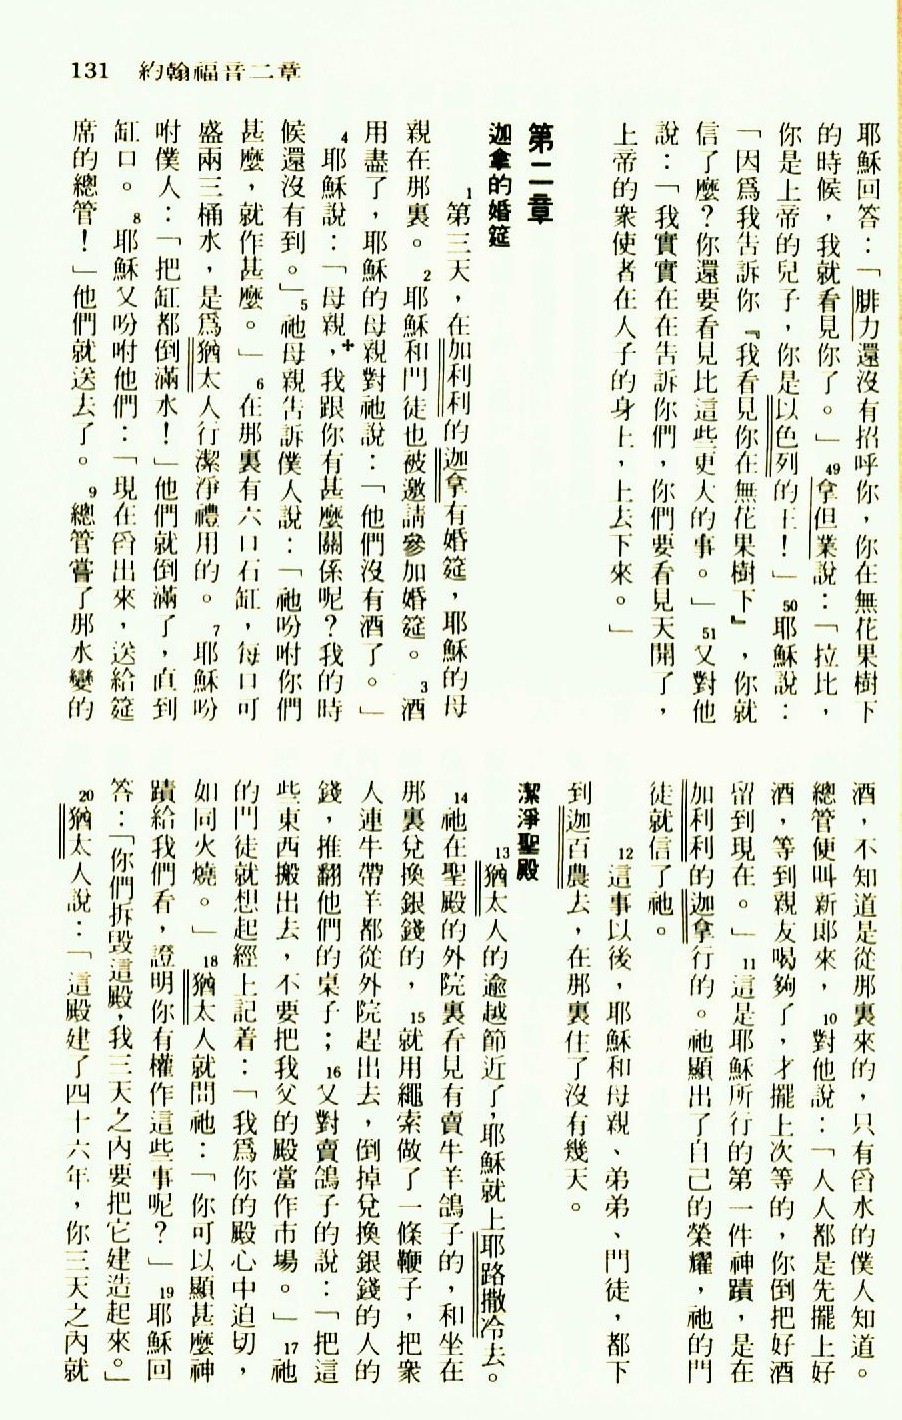 131 約翰福音二章
耶穌回答：「腓力還沒有招呼你，你在無花果樹下
的時候，我就看見你了。」49拿但業說：「拉比，
你是上帝的兒子，你是以色列的王！」50耶穌說：
「因爲我告訴你『我看見你在無花果樹下』，你就
信了麼？你還要看見比這些更大的事。」51又對他
說：「我實實在在告訴你們，你們要看見天開了，
上帝的衆使者在人子的身上，上去下來。」
第二章
迦拿的婚筵
1第三天，在加利利的迦拿有婚筵，耶穌的母
親在那裏。2耶穌和門徒也被邀請參加婚筵。3酒
用盡了，耶穌的母親對祂說：「他們沒有酒了。」
4耶穌說：「母親，＋我跟你有甚麼關係呢？我的時
候還沒有到。」5祂母親告訴僕人說：「祂吩咐你們
甚麼，就作甚麼。」6在那裏有六口石缸，每口可
盛兩三桶水，是爲猶太人行潔淨禮用的。7耶穌吩
咐僕人：「把缸都倒滿水！」他們就倒滿了，直到
缸口。8耶穌又吩咐他們：「現在舀出來，送給筵
席的總管！」他們就送去了。9總管嘗了那水變的
酒，不知道是從那裏來的，只有舀水的僕人知道。
總管便叫新郎來，10對他說：「人人都是先擺上好
酒，等到親友喝夠了，才擺上次等的，你倒把好酒
留到現在。」11這是耶穌所行的第一件神蹟，是在
加利利的迦拿行的。祂顯出了自己的榮耀，祂的門
徒就信了祂。
12這事以後，耶穌和母親、弟弟、門徒，都下
到迦百農去，在那裏住了沒有幾天。
潔淨聖殿
13猶太人的逾越節近了，耶穌就上耶路撒冷去。
14祂在聖殿的外院裏看見有賣牛羊鴿子的，和坐在
那裏兌換銀錢的，15就用繩索做了一條鞭子，把衆
人連牛帶羊都從外院趕出去，倒掉兌換銀錢的人的
錢，推翻他們的桌子；16又對賣鴿子的說：「把這
些東西搬出去，不要把我父的殿當作市場。」17祂
的門徒就想起經上記着：「我爲你的殿心中迫切，
如同火燒。」18猶太人就問祂：「你可以顯甚麼神
蹟給我們看，證明你有權作這些事呢？」19耶穌回
答：「你們拆毀這殿，我三天之內要把它建造起來。」
20猶太人說：「這殿建了四十六年，你三天之內就